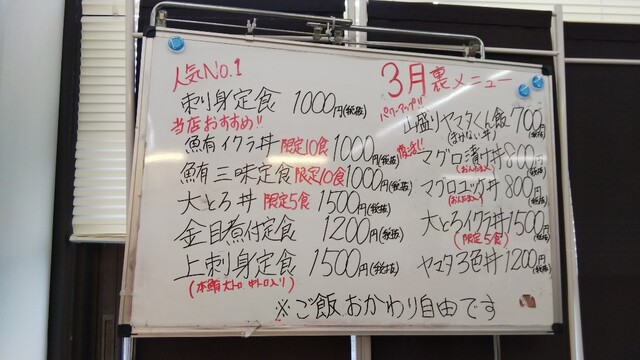 人気No.1
刺身定食 1000円(税抜)
当店おすすめ!!
鮪イクラ丼 限定10食 1000円(税抜)
鮪三味定食 限定10食 1000円(税抜)
大とろ丼 限定5食 1500円(税抜)
金目煮付定食 1200円(税抜)
上刺身定食 1500円(税抜)
(本鮪大トロ 中トロ入り)
3月裏メニュー
パワーアップ!!
山盛りヤマタくん飯 700円(税抜)
復活!! マグロ漬け丼 800円(税抜)
マグロユッケ丼 800円(税抜)
大とろイクラ丼 1500円(税抜)
(限定5食)
ヤマタ3色丼 1200円(税抜)
※ご飯おかわり自由です